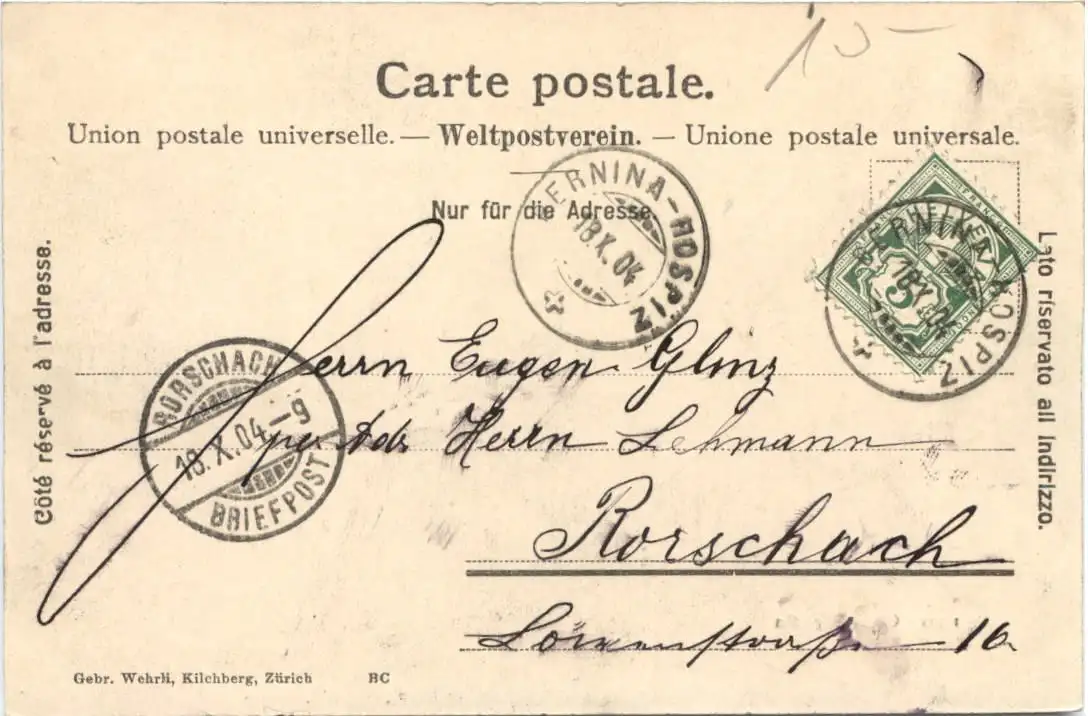 15-
Carte postale.
Union postale universelle. — Weltpostverein. — Unione postale universale.
Nur für die Adresse.
BERNINA-HOSPIZ
18.X.04
BERNINA-HOSPIZ
18.X.04
5
Côté réservé à l'adresse.
Lato riservato all Indirizzo.
RORSCHACH
18.X.04-9
BRIEFPOST
Herrn Eugen Glinz
per Adr. Herrn Lehmann
Rorschach
Löwenstrasse 16.
Gebr. Wehrli, Kilchberg, Zürich BC